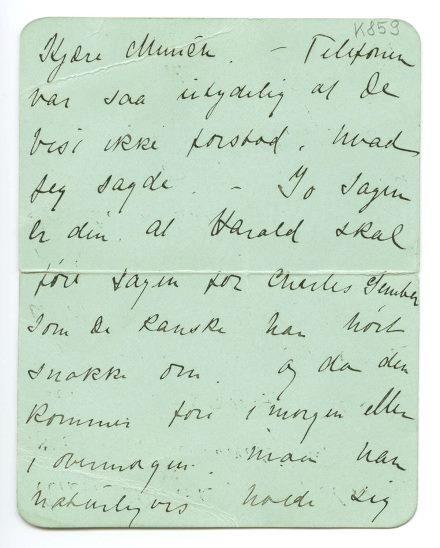 K859
Kjære Munch. – Telefonen
var saa utydelig at De
vist ikke forstod, hvad
jeg sagde. – Jo Sagen
er den at Harald skal
føre Sagen for Charles
som De kanske har hørt
snakke om. og da den
kommer fore imorgen eller
i overmorgen. maa han
naturligvis holde sig